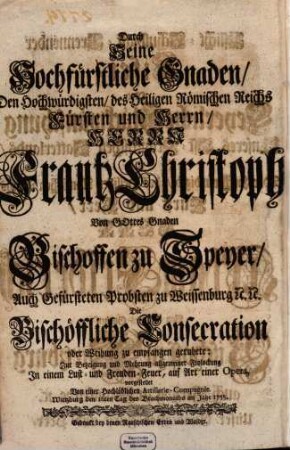 Durch
Seine
Hochfürstliche Gnaden/
Den Hochwürdigsten/ des Heiligen Römischen Reichs
Fürsten und Herrn/
HERRN
Frantz Christoph
Von GOttes Gnaden
Bischoffen zu Speyer/
Auch Gefürsteten Probsten zu Weissenburg ꝛc. ꝛc.
Die
Bischöffliche Consecration
oder Weihung zu empfangen geruhete:
Zur Bezeigung und Mehrung allgemeiner Frolockung
In einem Lust- und Freuden-Feuer, auf Art einer Opera,
vorgestellet
Von einer Hochlöblichen Artillerie-Compagnie
Würtzburg den Tag des im Jahr
Gedruckt bey Erben und